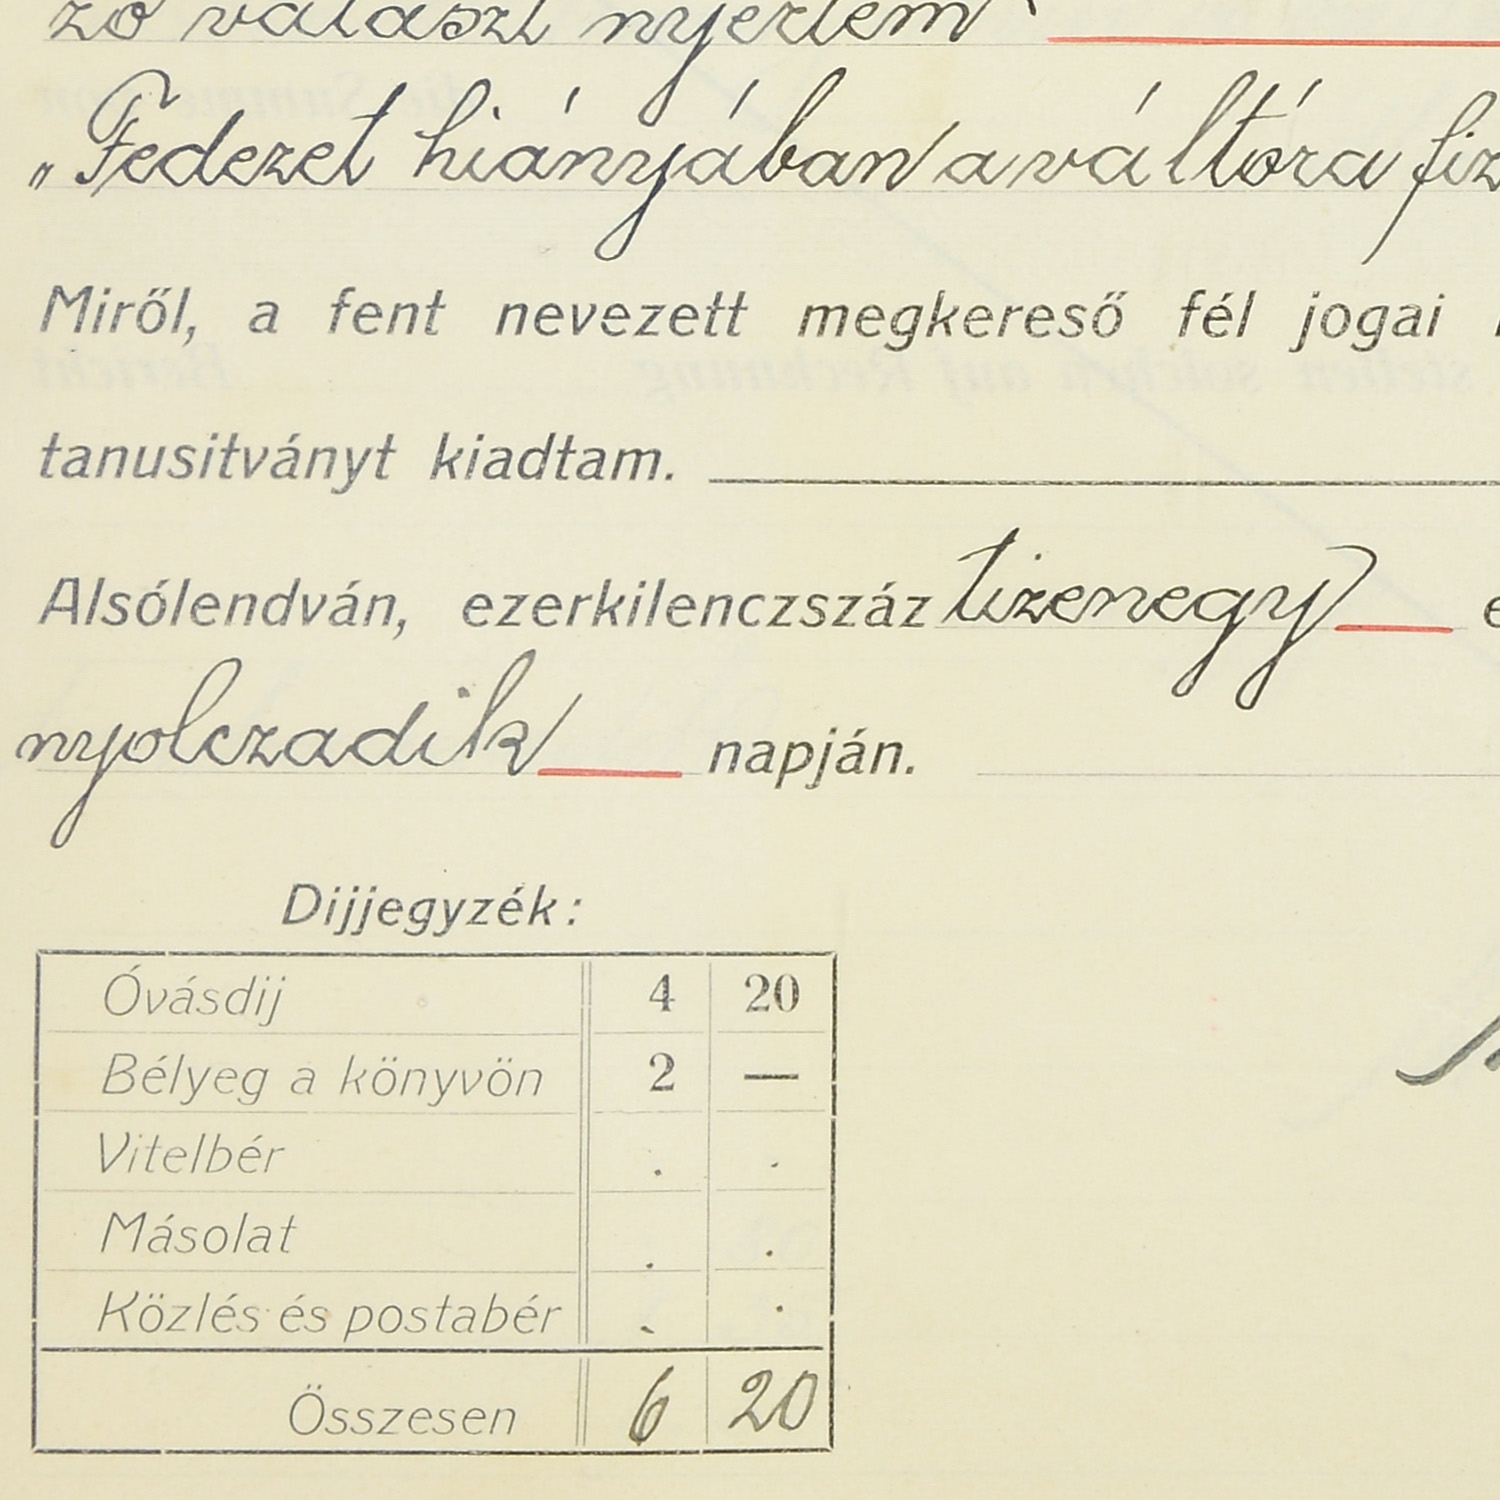 ző választ nyertem
„Fedezet hiányában a váltóra fiz
Miről, a fent nevezett megkereső fél jogai
tanusitványt kiadtam.
Alsólendván, ezerkilenczszáz tizenegy e
nyolczadik napján.
Dijjegyzék:
Óvásdij 4 20
Bélyeg a könyvön 2 —
Vitelbér . .
Másolat . .
Közlés és postabér . .
Összesen 6 20